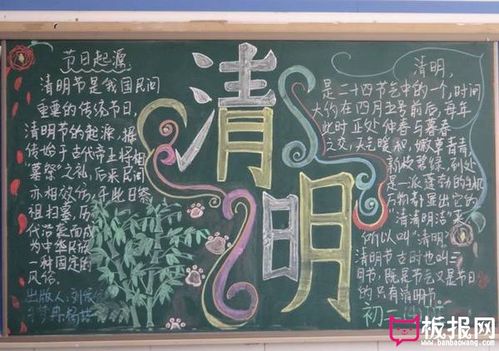 节日起源
清明节是我国民间
重要的传统节日,
清明节的起源,据
传始于古代帝王将相
“墓祭”之礼,后来民间
亦相效仿,于此日祭
祖扫墓,历
代沿袭而成
为中华民族
一种固定的
风俗
出版人:刘
清明
清明,
是二十四节气中的一个,时间
大约在四月五号前后,每年
此时正处仲春与暮春
之交,天气暖和,嫩草青青
新枝碧绿,到处
是一派蓬勃的生机
万物都显出它的
“清清明洁”来
所以叫“清明”
清明节古时也叫三
月节,既是节气又是节日
的只有清明节
初一
板报网
www.banbaowang.com